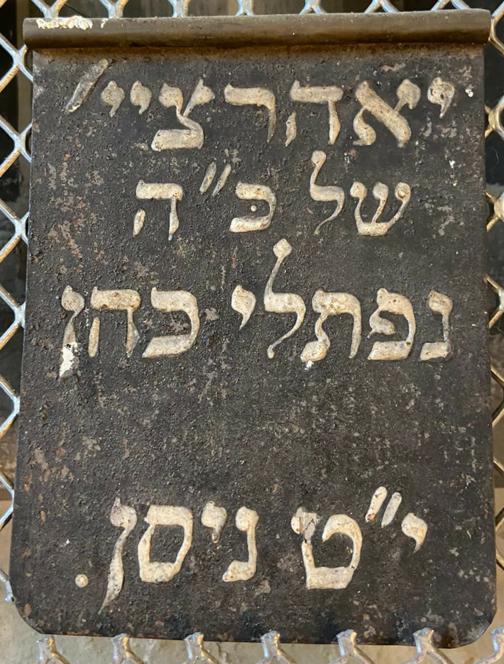 יאהרציי׳
של כּ״ה
נפתלי כהן
י״ט ניסן.